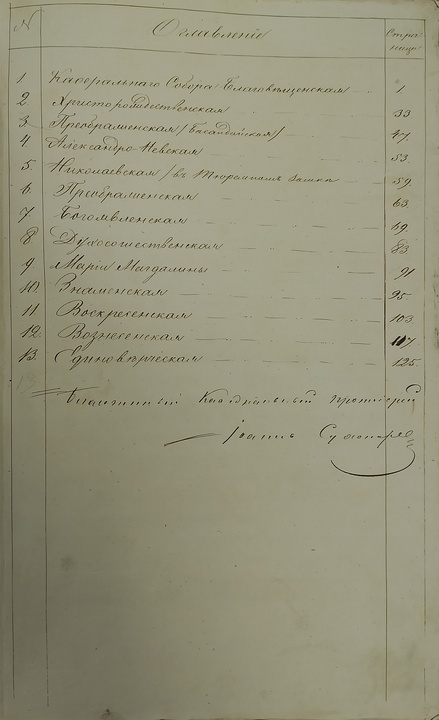 № Оглавленіе Стра
ницы
1 Каѳедральнаго Собора Благовѣщенская 1.
2. Христорождественская 33
3. Преображенская /Басандайская/ 47.
4 Александро-Невская 53.
5. Николаевская /въ Тюремномъ замкѣ 59.
6. Преображенская 63.
7. Богоявленская 69.
8. Духосошественская 83
9 Маріи Магдалины 91
10. Знаменская 95
11 Воскресенская 103.
12. Вознесенская 117
13. Единовѣрческая 125.
Благочинный Каѳедральный протоіерей
Іоаннъ